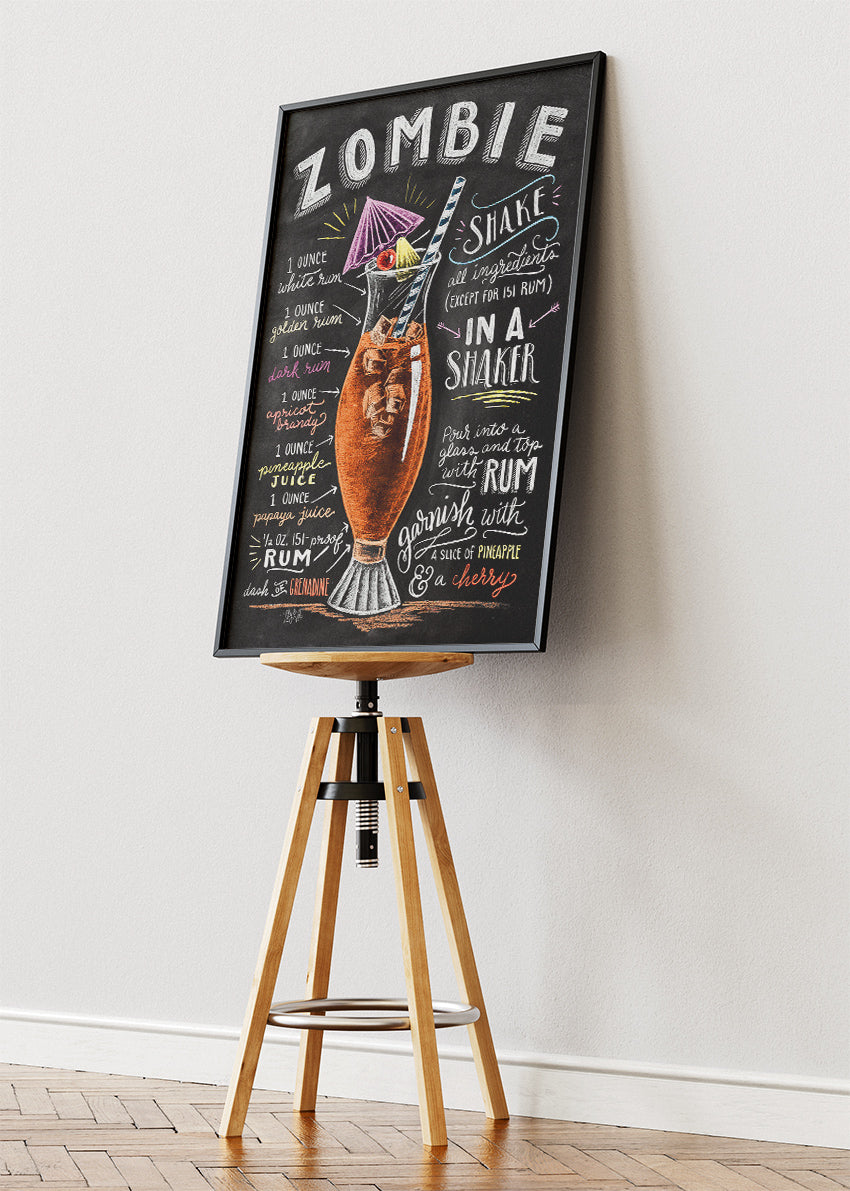 ZOMBIE
1 OUNCE
white rum
1 OUNCE
golden rum
1 OUNCE
dark rum
1 OUNCE
apricot
brandy
1 OUNCE
pineapple
JUICE
1 OUNCE
papaya juice
1/2 OZ. 151-proof
RUM
dash OF GRENADINE
SHAKE
all ingredients
(EXCEPT FOR 151 RUM)
IN A
SHAKER
Pour into a
glass and top
with RUM
garnish with
A SLICE OF PINEAPPLE
& a cherry